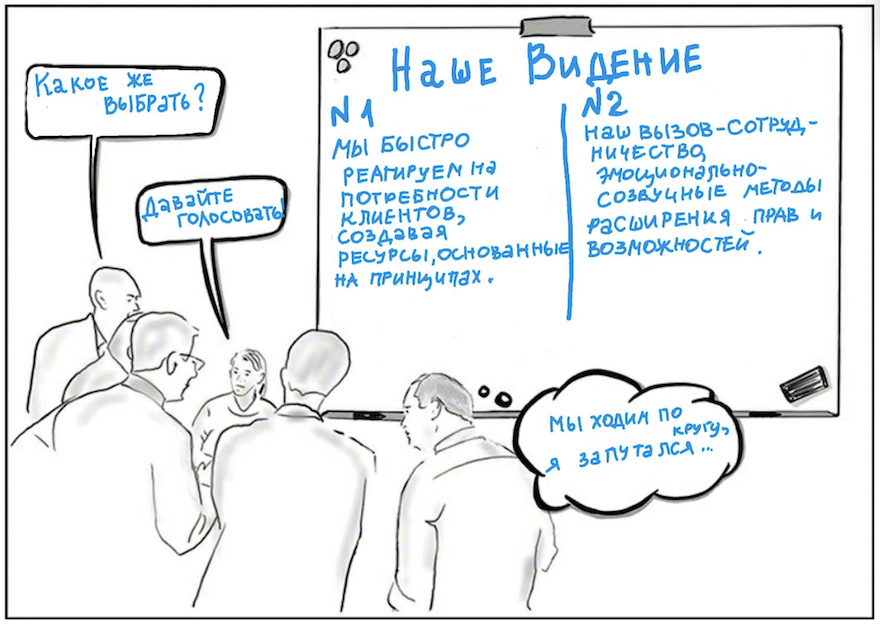 Наше Видение
Какое же
выбрать?
Давайте
голосовать!
N1
Мы быстро
реагируем на
потребности
клиентов,
создавая
ресурсы, основанные
на принципах.
N2
Наш вызов-сотруд-
ничество,
эмоционально-
созвучные методы
расширения прав и
возможностей.
Мы ходим по
кругу,
я запутался...